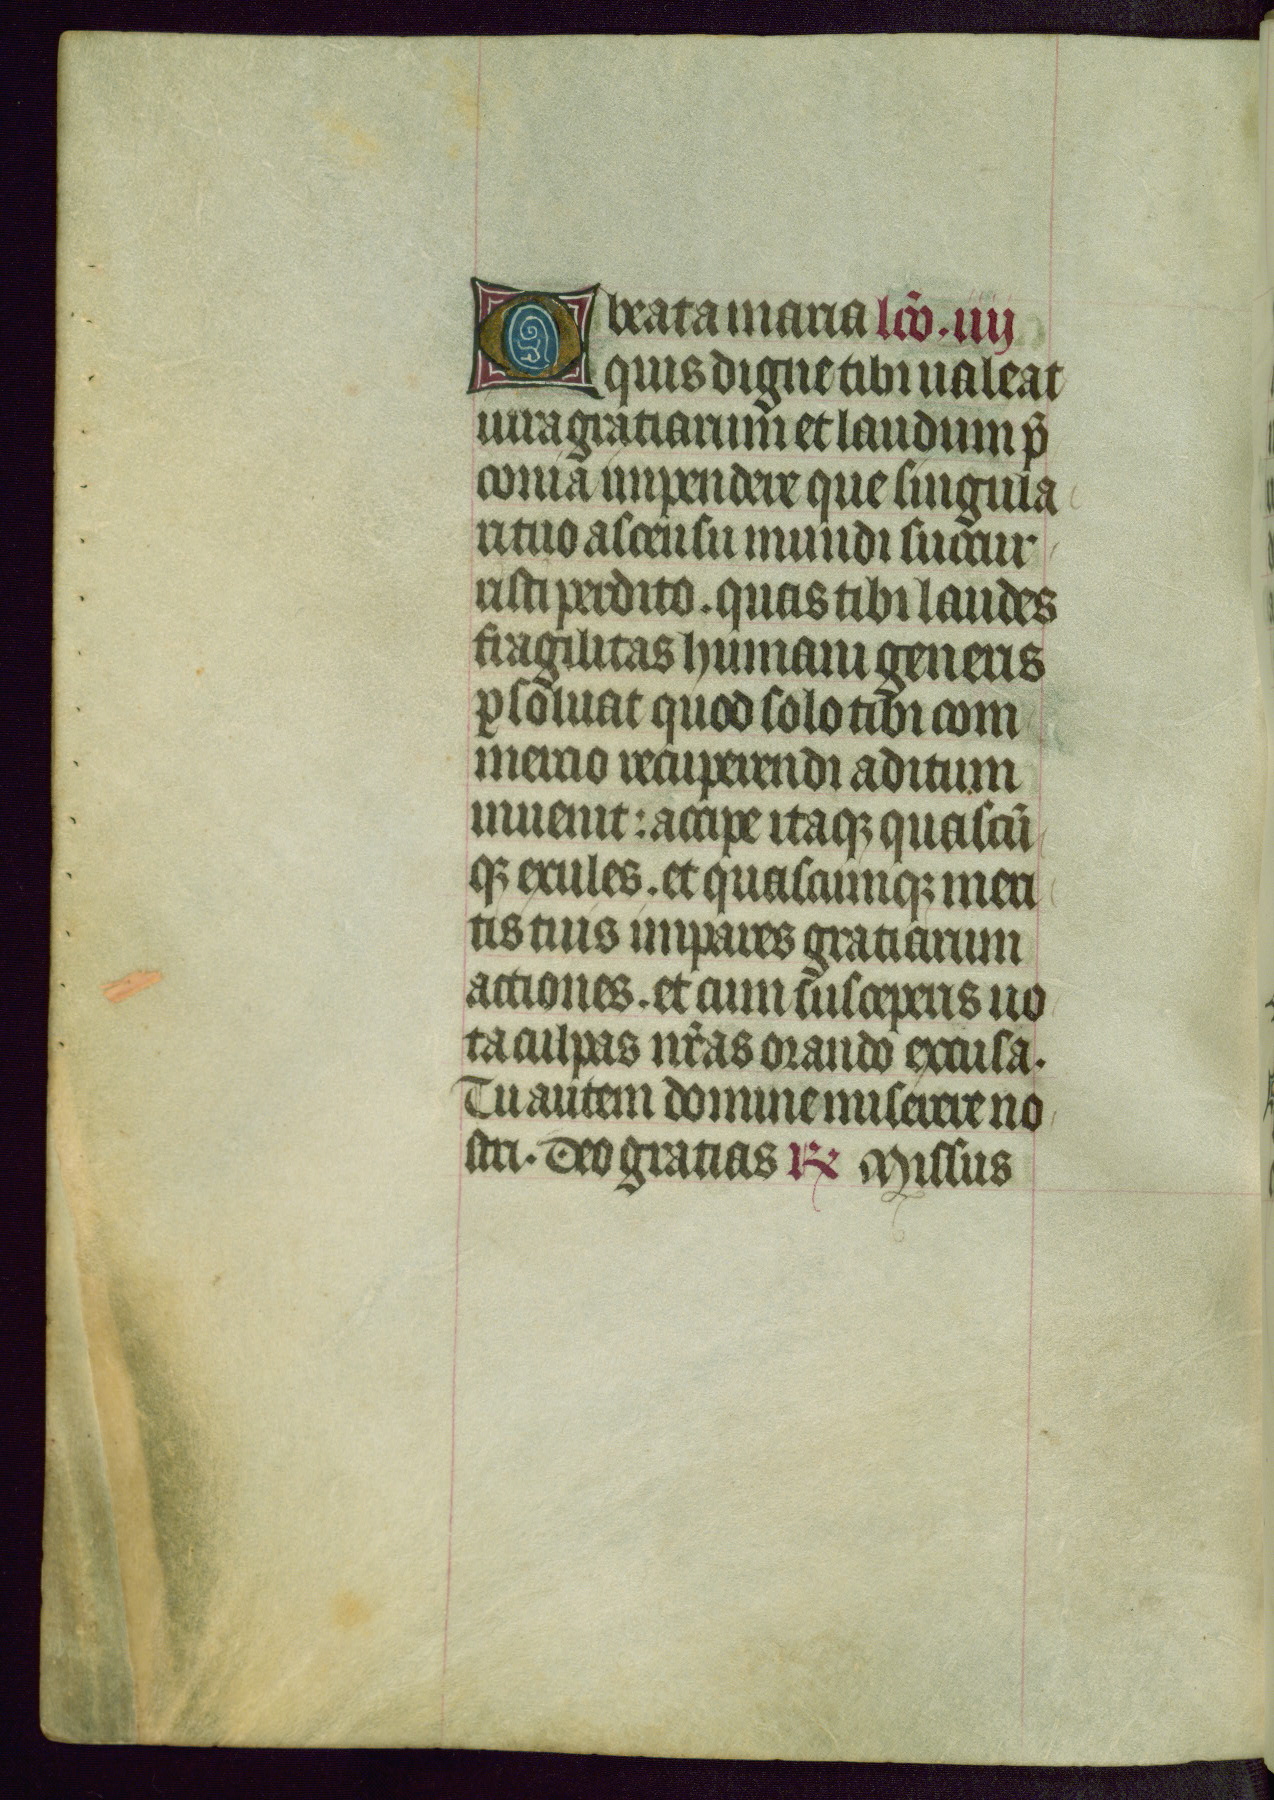 O beata maria lc̄o. iiij
quis digne tibi ualeat
iura gratiarum et laudum p̄
conia impendere que singula
ri tuo ascensu mundi succur
risti perdito. quas tibi laudes
fragilitas humani generis
ꝑsoluat quod solo tibi com
mertio recuperendi aditum
inuenit: accipe itaqꝫ quascū
qꝫ exules. et quascumqꝫ meri
tis tuis impares gratiarum
actiones. et cum susceperis uo
ta culpas nr̄as orando excusa.
Tu autem domine miserere no
stri. Deo gratias ℟ Missus